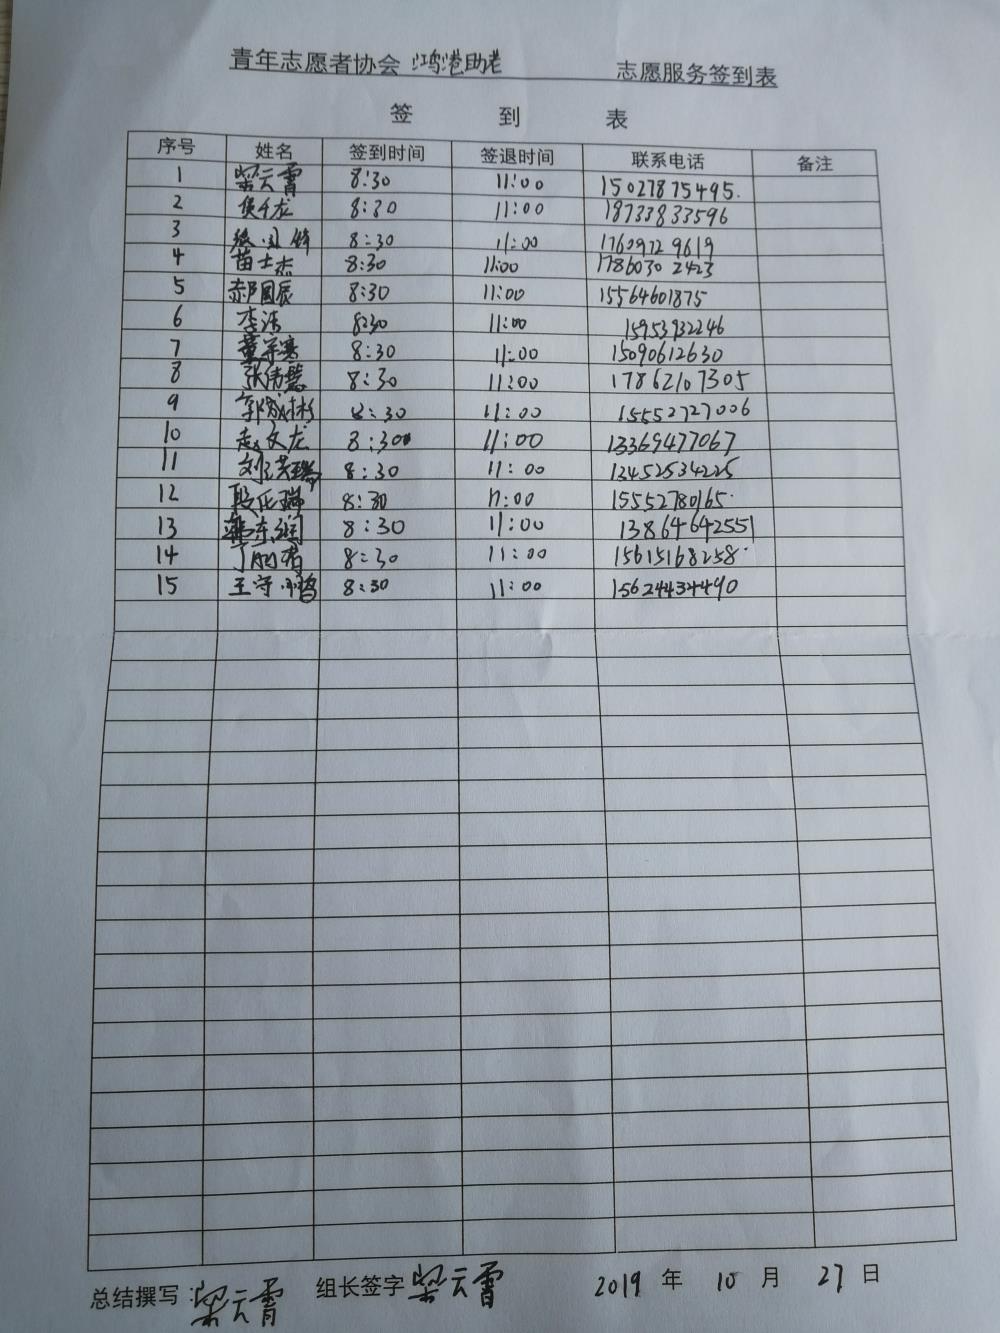 青年志愿者协会 鸿港助老 志愿服务签到表
签 到 表
序号 姓名 签到时间 签退时间 联系电话 备注
1 梁云霄 8:30 11:00 15027875495.
2 侯千龙 8:30 11:00 18733833596
3 8:30 11:00 17609729619
4 苗士杰 8:30 11:00 17860302423
5 郝国辰 8:30 11:00 15564601875
6 李洁 8:30 11:00 15953932246
7 董宇骞 8:30 11:00 15090612630
8 张倩慧 8:30 11:00 17862107305
9 郭成彬 8:30 11:00 15552727006
10 赵文龙 8:30 11:00 13369477067
11 8:30 11:00 13452534225
12 8:30 11:00 15552780165.
13 8:30 11:00 13864642551
14 8:30 11:00 15615168258.
15 王守鹏 8:30 11:00 15624434490
总结撰写:梁云霄 组长签字 梁云霄 2019 年 10 月 27 日